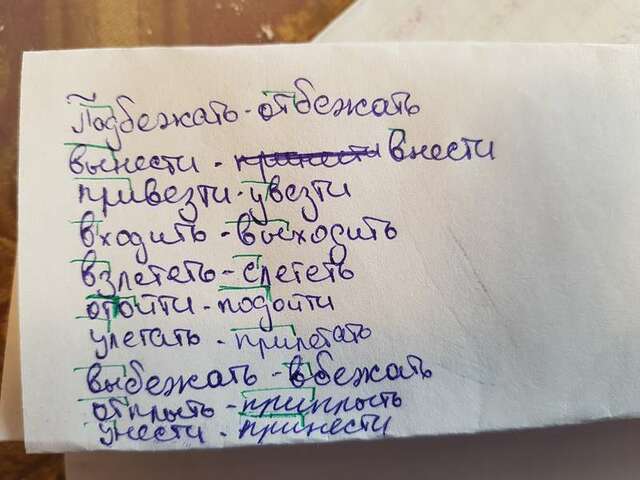 ~
Подбежать - отбежать
вынести - принести внести
привезти - увезти
входить - выходить
взлетать - слететь
отойти - подойти
улетать - прилетать
выбежать - вбежать
отплыть - приплыть
унести - принести